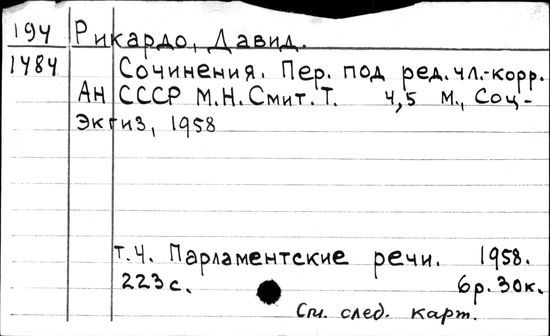 194 Рикардо, Давид.
1484 Сочинения. Пер. под ред. чл.-корр.
АН СССР М.Н. Смит. Т. 4,5 М., Соц-
Экгиз, 1958
т.4. Парламентские речи. 1958.
223 с. 6р. 30к.
См. след. карт.